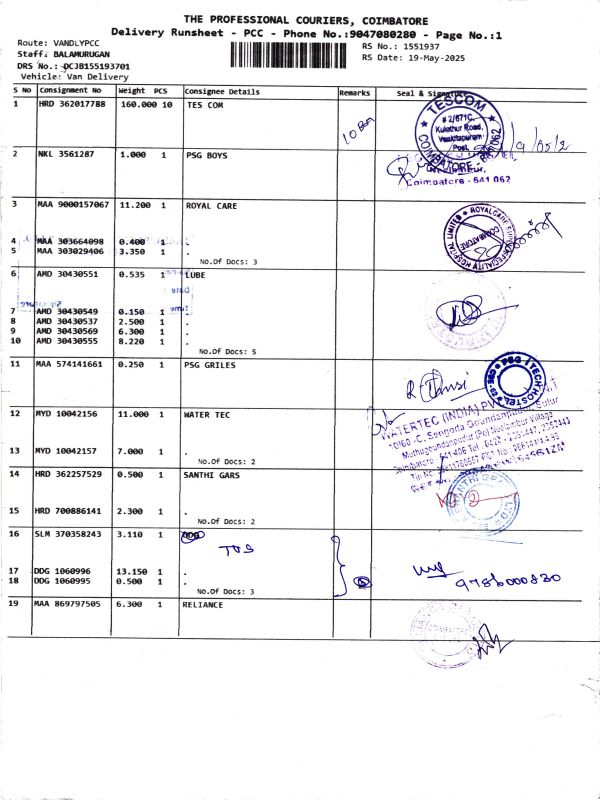 THE PROFESSIONAL COURIERS, COIMBATORE
Delivery Runsheet - PCC - Phone No.:9047080280 - Page No.:1
Route: VANDLYPCC
RS No.: 1551937
Staff: BALAMURUGAN
RS Date: 19-May-2025
DRS No.: DCJB155193701
Vehicle: Van Delivery
S No Consignment No Weight PCS Consignee Details Remarks Seal & Signature
1 HRD 362017788 160.000 10 TES COM
10 Box
TESCOM
# 2/671C,
Kulathur Road,
Venkitapuram
Post,
COIMBATORE - 641 062
2 NKL 3561287 1.000 1 PSG BOYS
Coimbatore - 641 062
3 MAA 9000157067 11.200 1 ROYAL CARE
4 MAA 303664098 0.400 1 .
5 MAA 303029406 3.350 1 .
No.Of Docs: 3
ROYALCARE SUPER SPECIALITY HOSPITAL LIMITED
COIMBATORE
6 AMD 30430551 0.535 1 LUBE
7 AMD 30430549 0.150 1 .
8 AMD 30430537 2.500 1 .
9 AMD 30430569 6.300 1 .
10 AMD 30430555 8.220 1 .
No.Of Docs: 5
11 MAA 574141661 0.250 1 PSG GRILES
PSG iTECH HOSTEL
12 MYD 10042156 11.000 1 WATER TEC
13 MYD 10042157 7.000 1 .
No.Of Docs: 2
WATERTEC (INDIA) PVT
14 HRD 362257529 0.500 1 SANTHI GARS
15 HRD 700886141 2.300 1 .
No.Of Docs: 2
16 SLM 370358243 3.110 1 DDG
TDS
17 DDG 1060996 13.150 1 .
18 DDG 1060995 0.500 1 .
No.Of Docs: 3
9786000830
19 MAA 869797505 6.300 1 RELIANCE